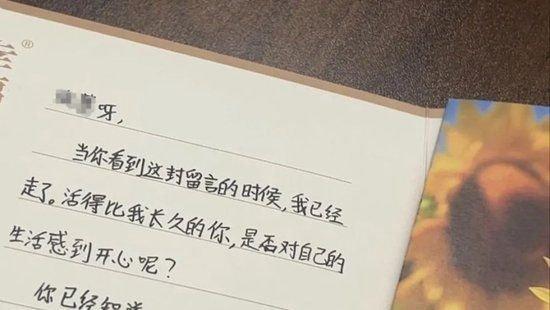 呀，
当你看到这封留言的时候，我已经
走了。活得比我长久的你，是否对自己的
生活感到开心呢？
你已经知道